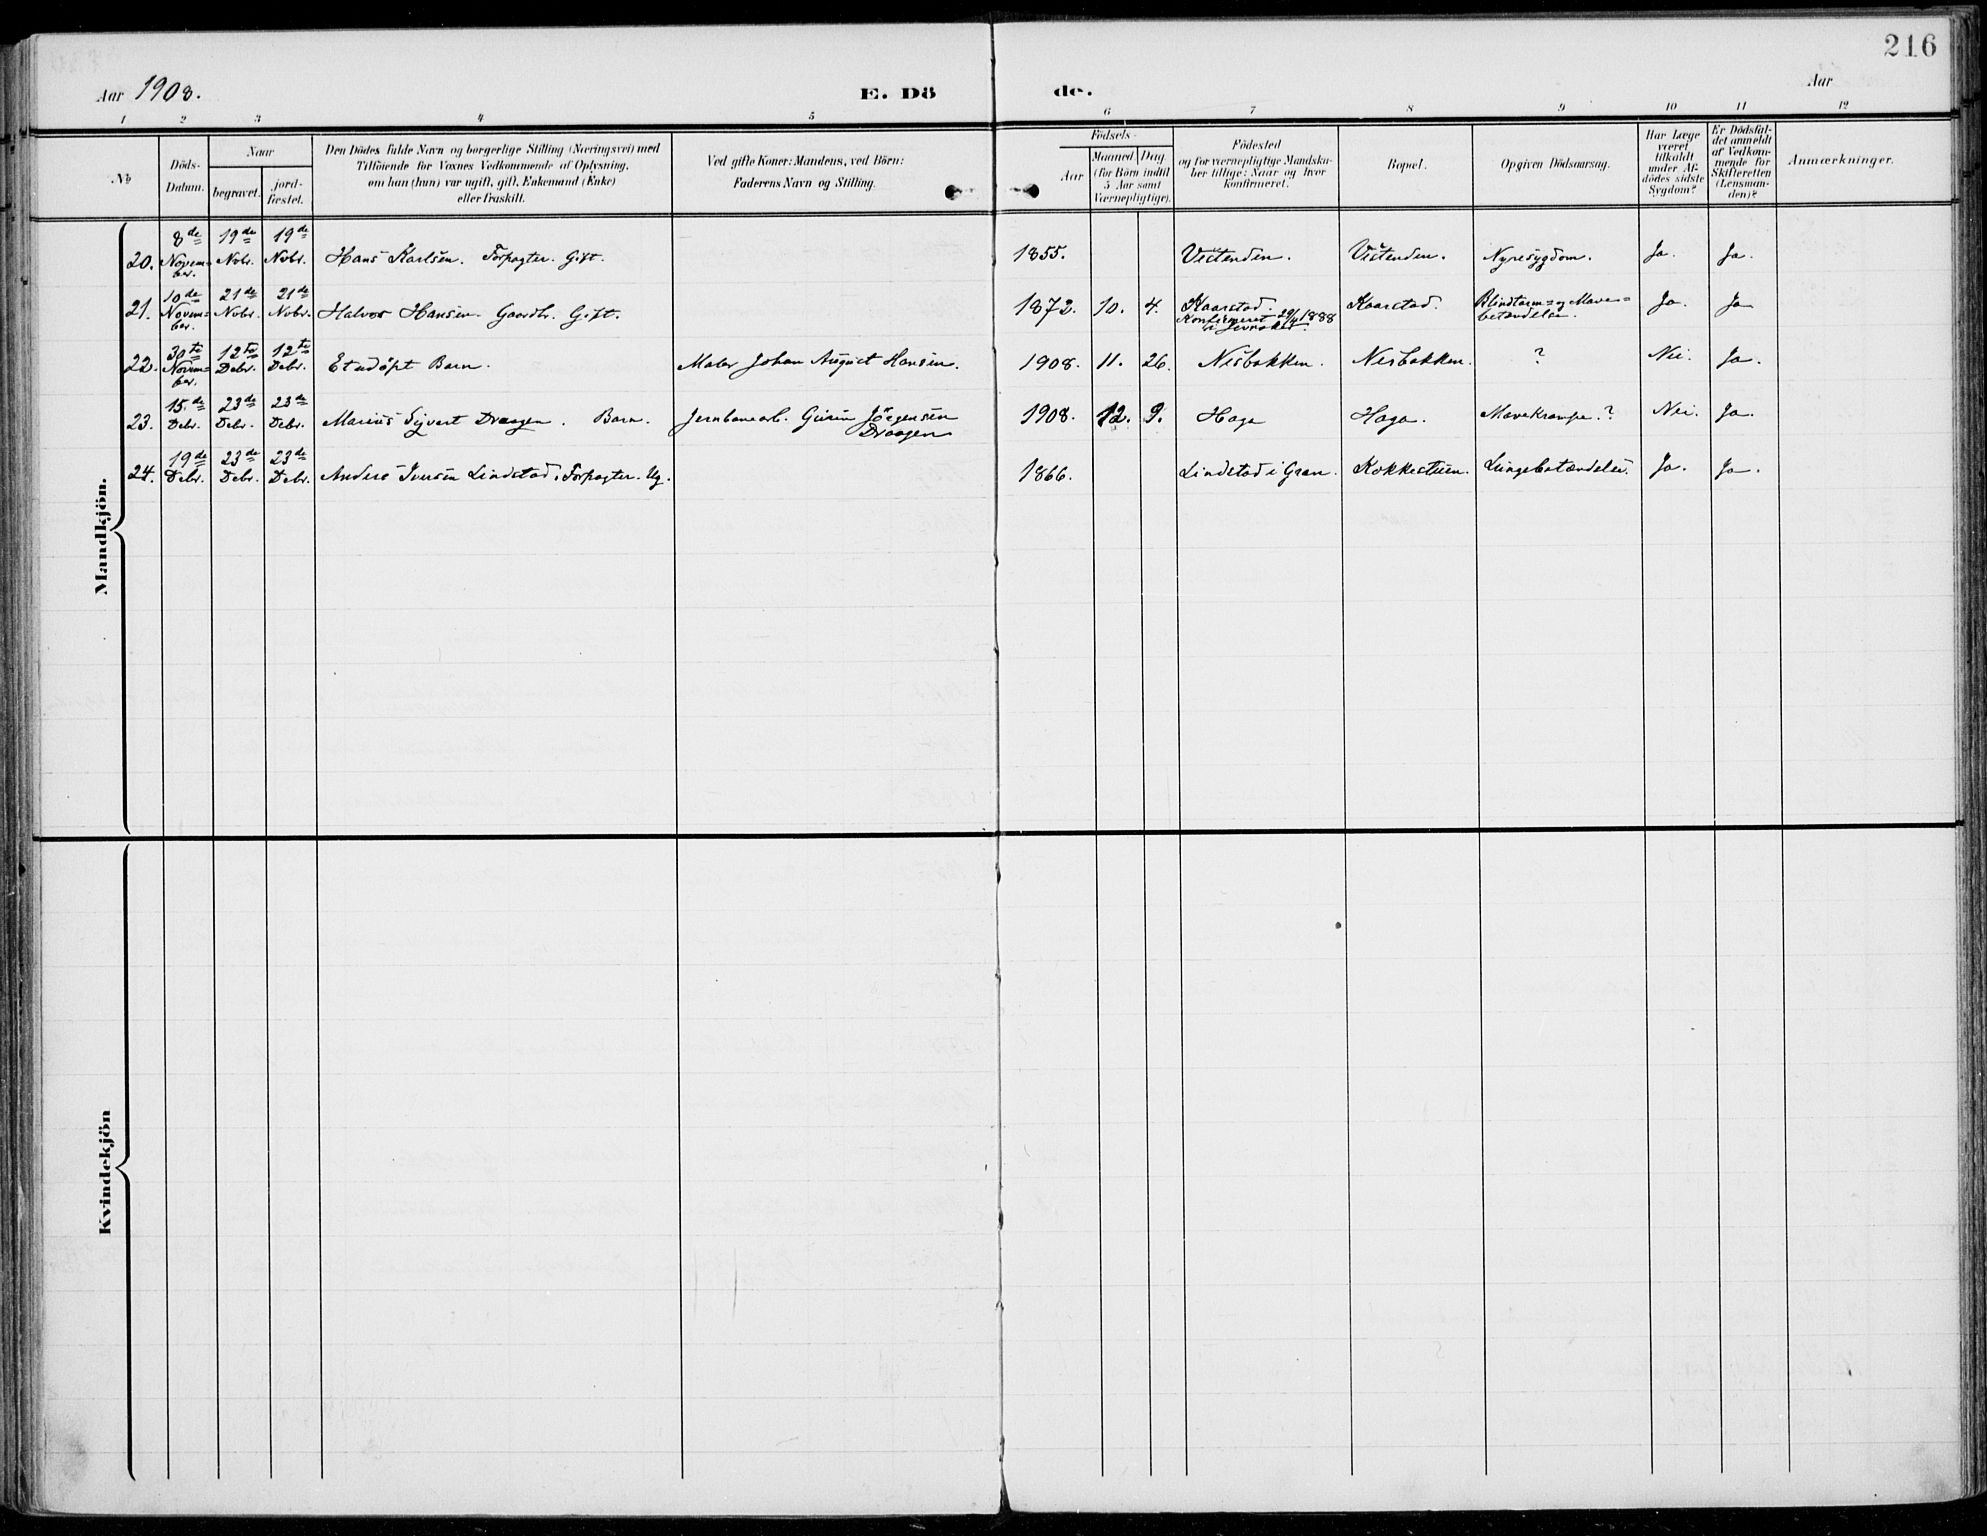 216
Aar 1908.
E. Dö de.
Aar
1 2 3 4 5 6 7 8 9 10 11 12
No
Döds-
Datum.
Naar
begravet.
jord-
fæstet.
Den Dödes fulde Navn og borgerlige Stilling (Næringsvei) med
Tilföiende for Voxnes Vedkommende af Oplysning,
om han (hun) var ugift, gift, Enkemand (Enke)
eller fraskilt.
Ved gifte Koner: Mandens, ved Börn:
Faderens Navn og Stilling.
Födsels-
Aar
Maaned. Dag
(for Börn indtil
5 Aar samt
Værnepligtige).
Födested
og for værnepligtige Mandskaber tillige: Naar og hvor
konfirmeret.
Bopæl.
Opgiven Dödsaarsag.
Har Læge
været
tilkaldt
under Af-
dödes sidste
Sygdom?
Er Dödsfal-
det anmeldt
af Vedkom-
mende for
Skifteretten
(Lensman-
den)?
Anmærkninger.
Mandkjön.
20. 8de Novem=ber. 19de Nobr. 19de Nobr. Hans Karlsen. Forpagter. Gift. 1855. Vestenden. Vestenden. Nyresygdom. Ja. Ja.
21. 10de Novem=ber. 21de Nobr. 21de Nobr. Halvor Hansen. Gaardbr. Gift. 1872. 10. 4. Kaarstad. Konfirmeret 1888 i Jevnaker. Kaarstad. Blindtarm= og Mave=betændelse. Ja. Ja
22. 30te Novem=ber. 12te Debr. 12te Debr. Et udöpt Barn. Maler Johan August Hansen. 1908. 11. 26. Nesbakken. Nesbakken. ? Nei. Ja.
23. 15de Debr. 23de Debr. 23de Debr. Marius Sigvart Draagen. Barn. Jernbanearb. Jörgensen Draagen 1908. 12. 9. Haga Haga. Mavekrampe.? Nei. Ja.
24. 19de Debr. 23de Debr. 23de Debr. Anders Iversen Lindstad, Forpagter. Ug. 1866. Lindstad i Gran. Kokkestuen. Lungebetændelse. Ja. Ja.
Kvindekjön